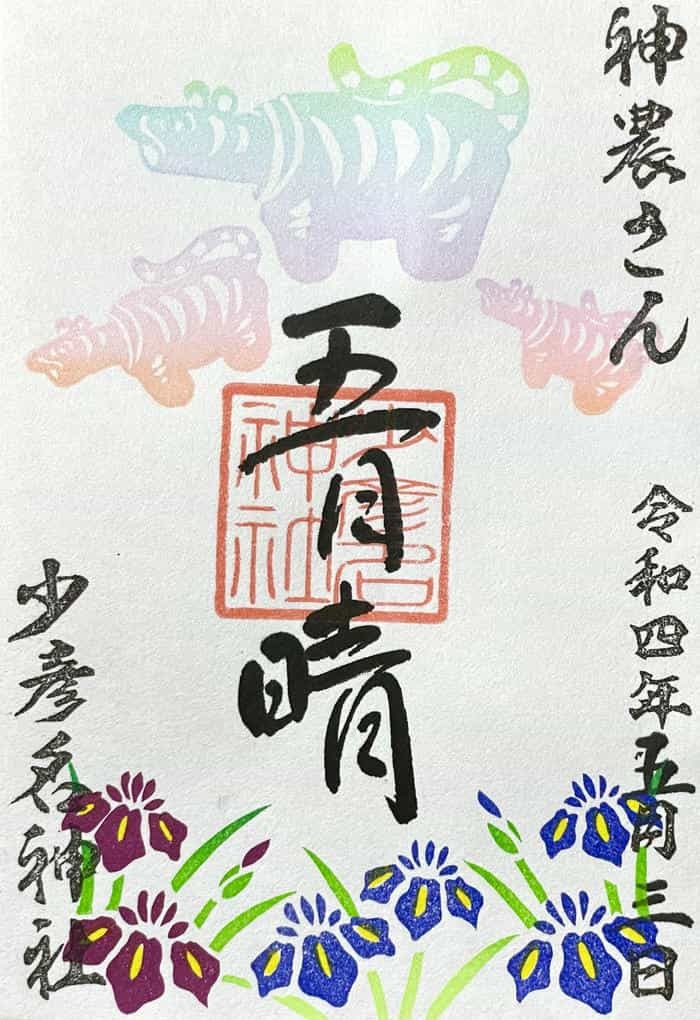 神農さん
令和四年五月三日
五月晴
少彦名神社
少彦名神社